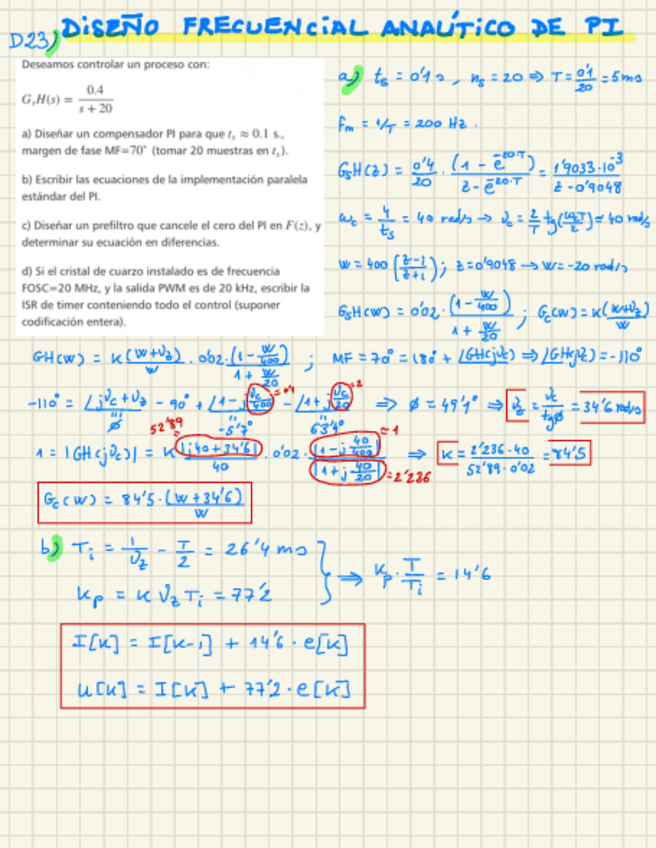 D23) DISEÑO FRECUENCIAL ANALÍTICO DE PI
Deseamos controlar un proceso con:
GₛH(s) = 0.4 / (s + 20)
a) Diseñar un compensador PI para que tₛ ≈ 0.1 s.,
margen de fase MF=70° (tomar 20 muestras en tₛ).
b) Escribir las ecuaciones de la implementación paralela
estándar del PI.
c) Diseñar un prefiltro que cancele el cero del PI en F(z), y
determinar su ecuación en diferencias.
d) Si el cristal de cuarzo instalado es de frecuencia
FOSC=20 MHz, y la salida PWM es de 20 kHz, escribir la
ISR de timer conteniendo todo el control (suponer
codificación entera).
a) tₛ = 0'1 s , nₛ = 20 ⇒ T = 0'1/20 = 5 ms
fm = 1/T = 200 Hz.
GₛH(z) = 0'4/20 · (1 - e^-20·T)/(z - e^-20·T) = 1'9033·10^-3/(z - 0'9048)
ωc = 4/tₛ = 40 rad/s → υc = 2/T tg(ωcT/2) ≈ 40 rad/s
W = 400 (z-1/z+1); z=0'9048 → W=-20 rad/s
GₛH(w) = 0'02 · (1 - W/400)/(1 + W/20) ; Gc(w) = K(W+υz)/W
GH(w) = K(W+υz)/W · 0'02 · (1 - W/400)/(1 + W/20) ; MF = 70° = 180° + ∠GH(jυc) ⇒ ∠GH(jυc) = -110°
-110° = ∠jυc+υz - 90° + ∠1-j υc/400 - ∠1+j υc/20 ⇒ ϕ = 49'1° ⇒ υz = υc/tgϕ = 34'6 rad/s
=0'1 =2
ϕ -5'7° 63'4°
52'89
1 = |GH(jυc)| = K |j40+34'6|/40 · 0'02 · |1-j 40/400|/|1+j 40/20| ⇒ K = 2'236·40/52'89·0'02 = 84'5
≈1
=2'236
Gc(w) = 84'5·(W+34'6)/W
b) Ti = 1/υz - T/2 = 26'4 ms
Kp = K υz Ti = 77'2
⇒ Kp · T/Ti = 14'6
I[k] = I[k-1] + 14'6 · e[k]
u[k] = I[k] + 77'2 · e[k]